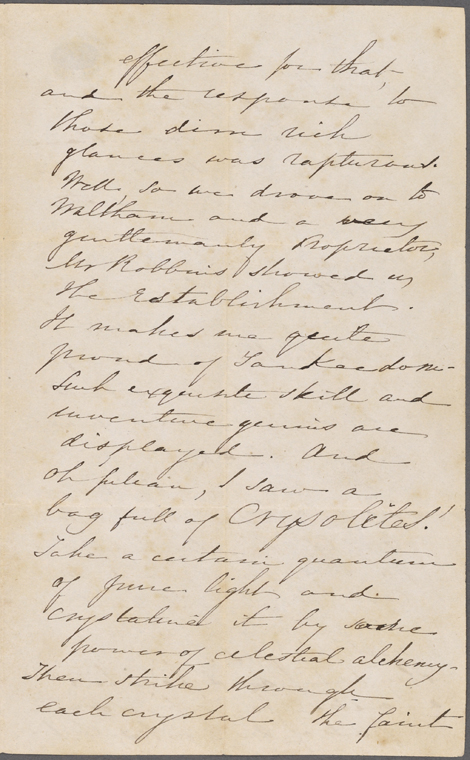 effective for that,
and the response to
those dim rich
glances was rapturous.
Well, so we drove on to
Waltham and a very
gentlemanly Proprietor,
Mr Robbins showed us
the Establishment.
It makes me quite
proud of Yankeedom -
Such exquisite skill and
inventive genius are
displayed. And
oh Julian, I saw a
bag full of Crysolites!
Take a certain quantum
of pure light and
crystalize it by some
power of celestial alchemy -
Then strike through
each crystal the faint